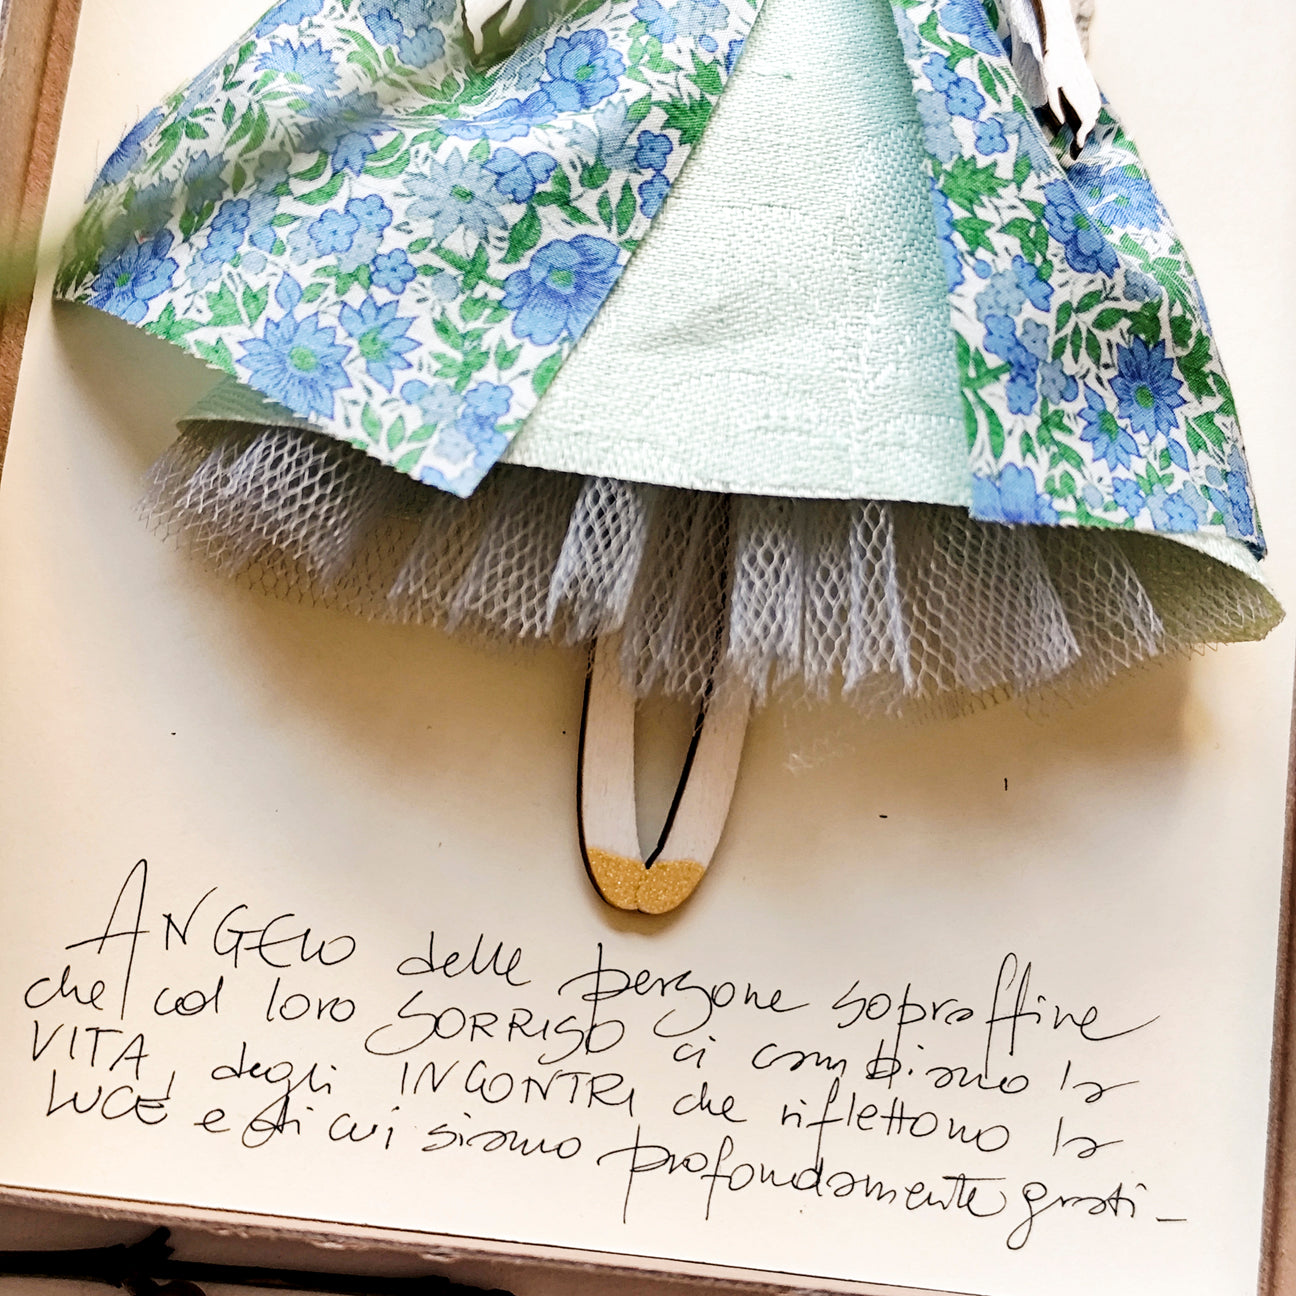 ANGELO delle persone sopraffine
che col loro SORRISO ci cambiano la
VITA, degli INCONTRI che riflettono la
LUCE e di cui siamo profondamente grati -